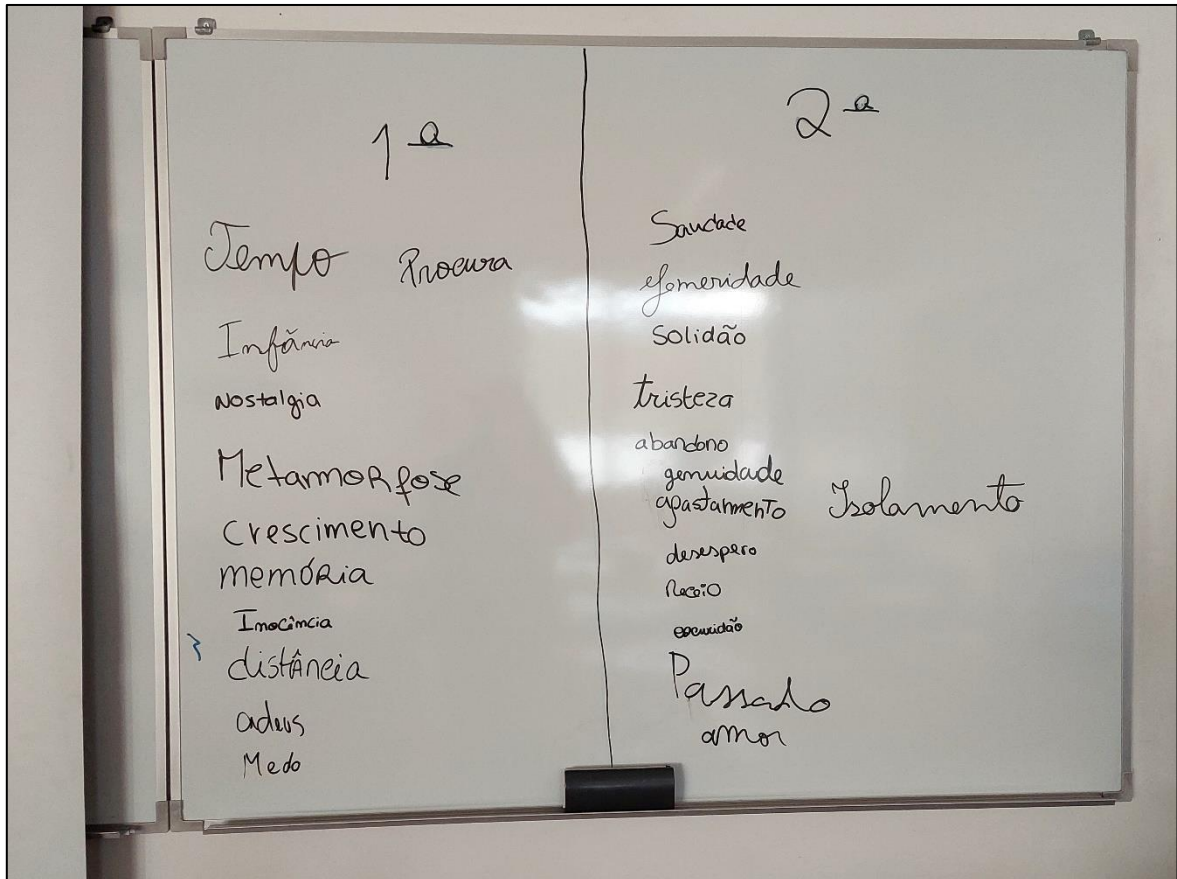 1ª
Tempo Procura
Infância
Nostalgia
Metamorfose
Crescimento
memória
Inocência
distância
adeus
Medo
2ª
Saudade
efomeridade
Solidão
tristeza
abandono
genuidade
afastamento Isolamento
desespero
Receio
escuridão
Passado
amor